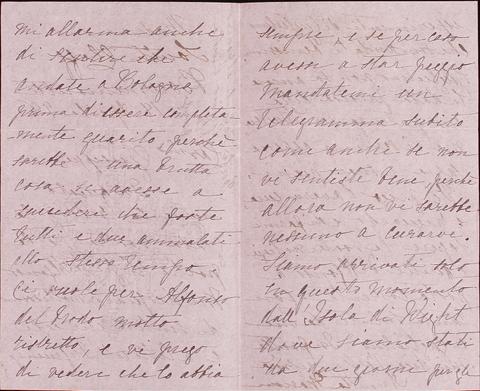 mi allarma anche
di sentire che
andate a Bologna
prima di essere completa-
-mente guarito, perchè
sarebbe una brutta
cosa se avesse a
succedere che foste
tutti e due ammalati
allo stesso tempo.
Ci vuole per Alfonso
del brodo molto
ristretto, e vi prego
di vedere che lo abbia
sempre, e se per caso
avesse a star peggio
mandatemi un
telegramma subito
come anche se non
vi sentiste bene, perchè
allora non vi sarebbe
nessuno a curarvi.
Siamo arrivati solo
in questo momento
dall' Isola di Wight
dove siamo stati
due giorni per gli